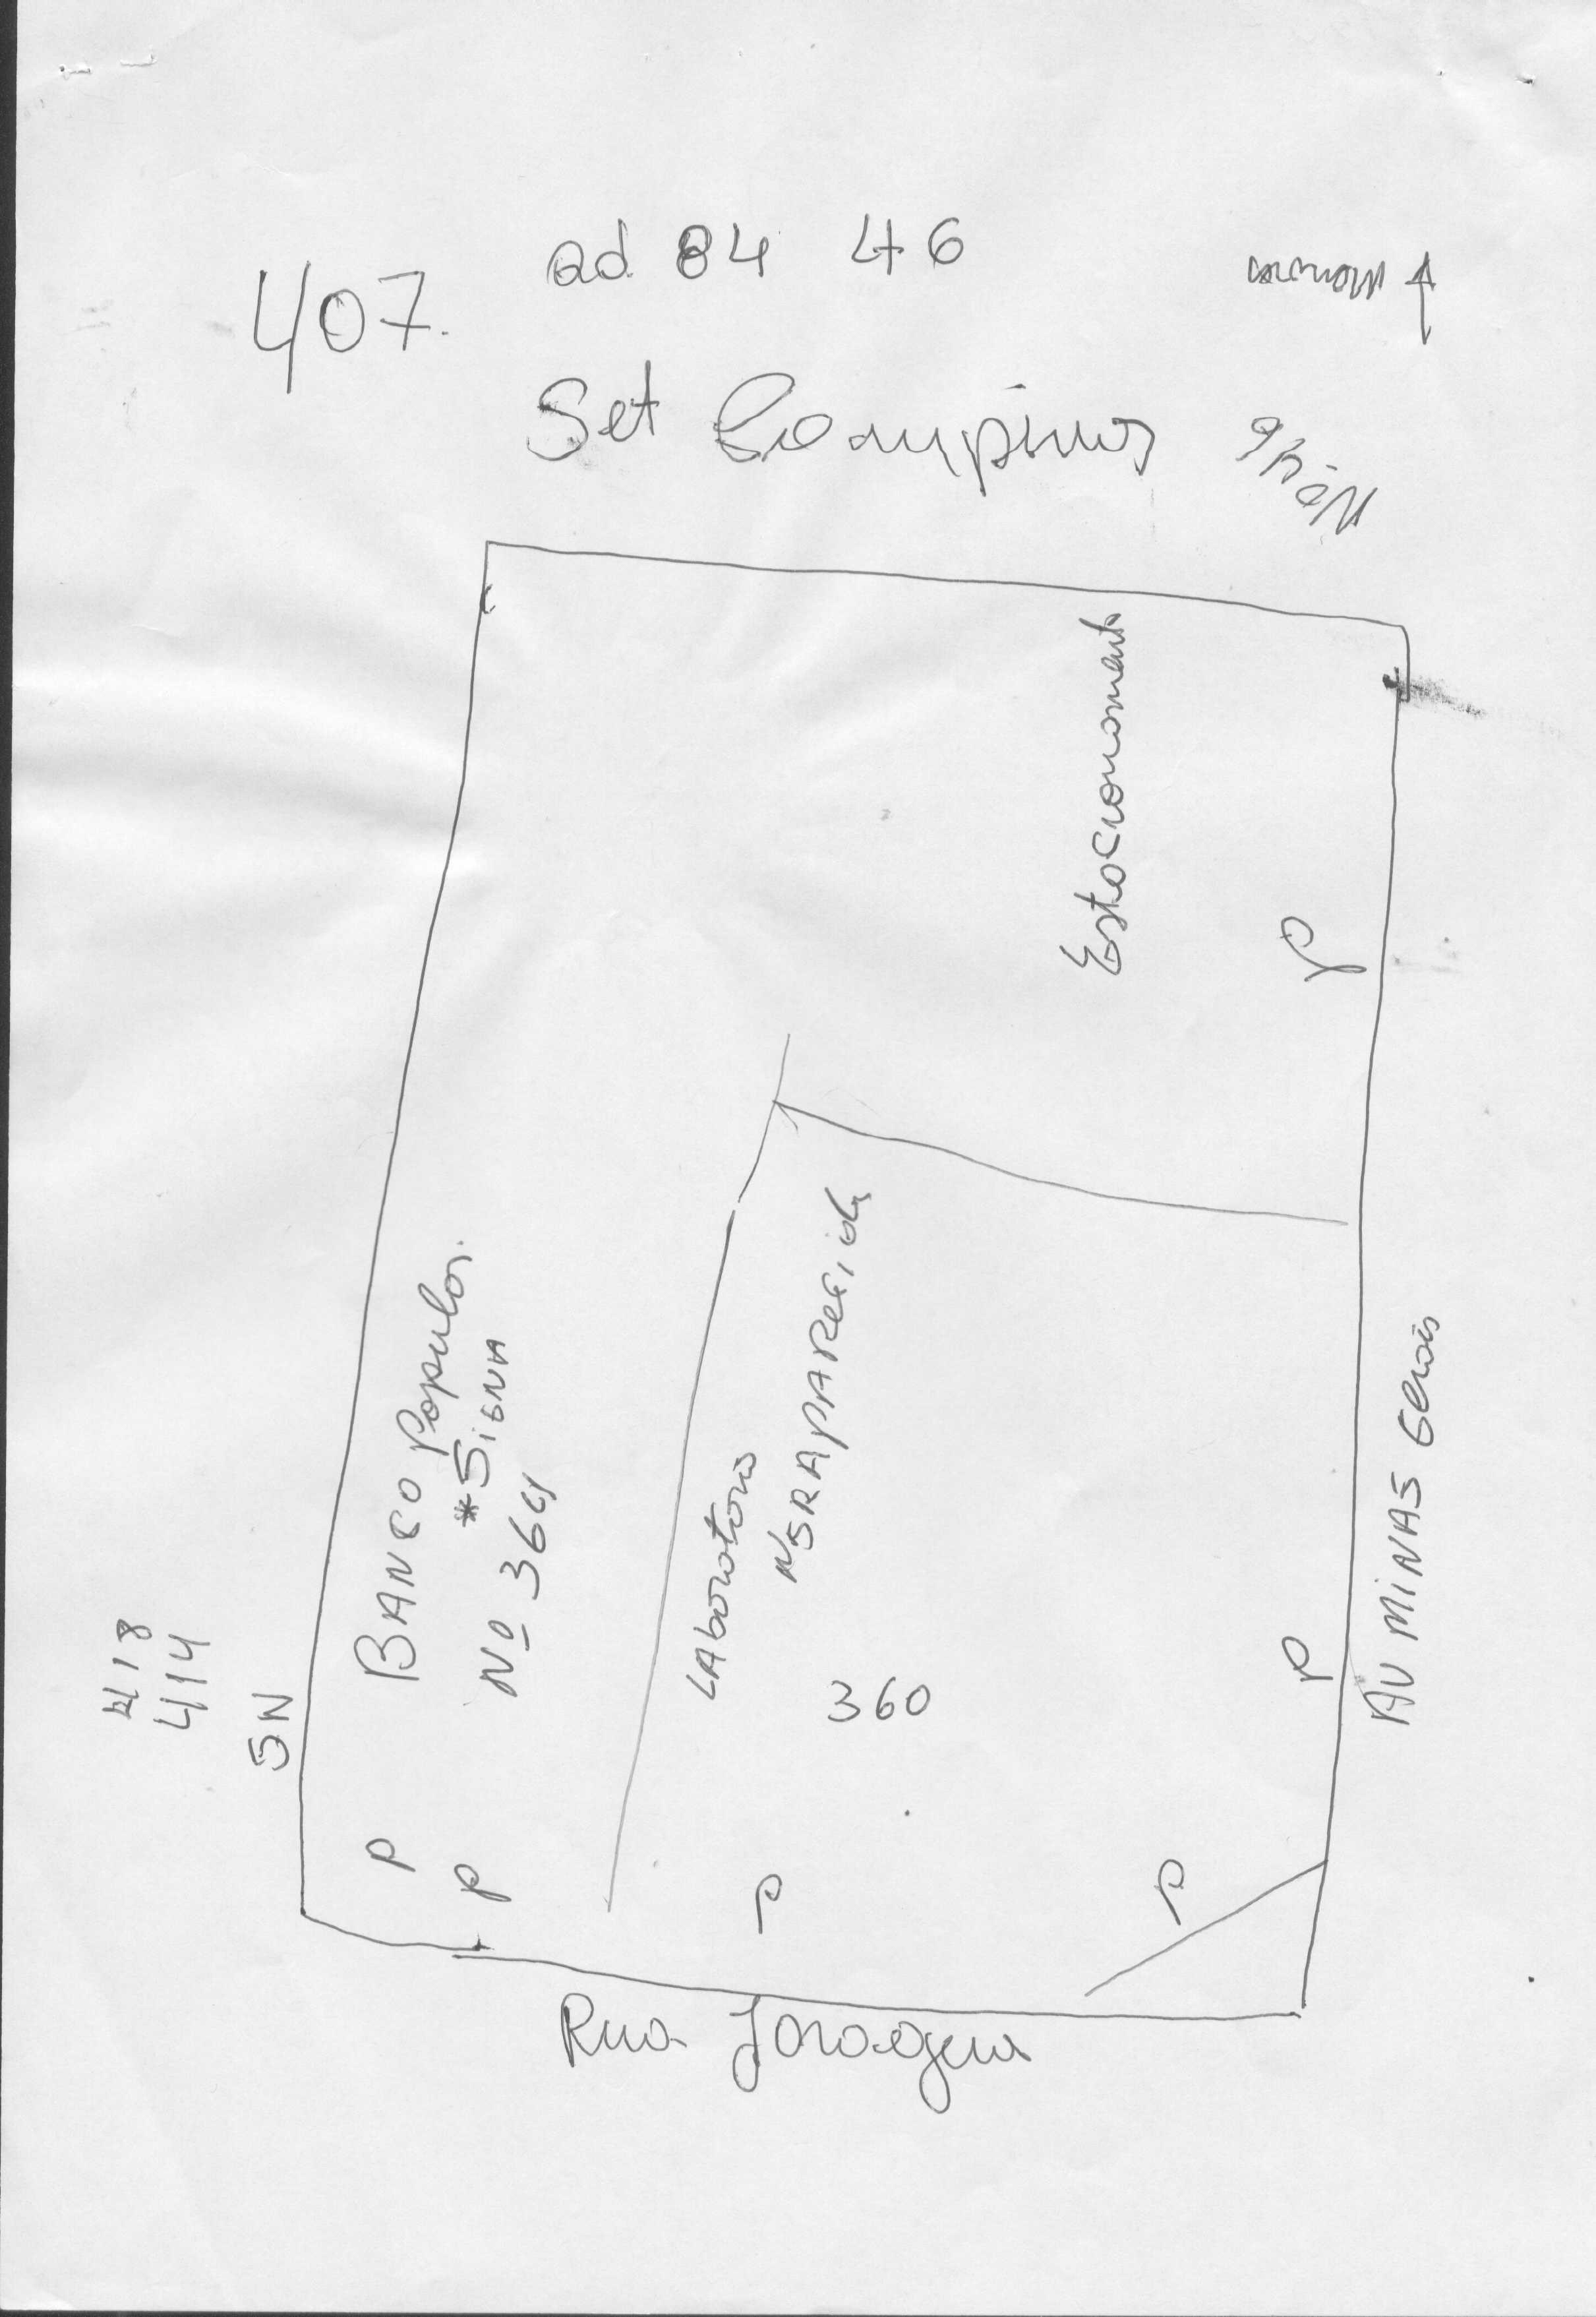 Qd 84 46
407.
Set Campinas
Nº 46
Estacionamento
P
Banco Popular
*Siena
Nº 364
Laboratorio
NSRA PARECIDA
360
418
414
SN
P
P
P
P
P
AV MINAS Gerais
Rua Jaragua